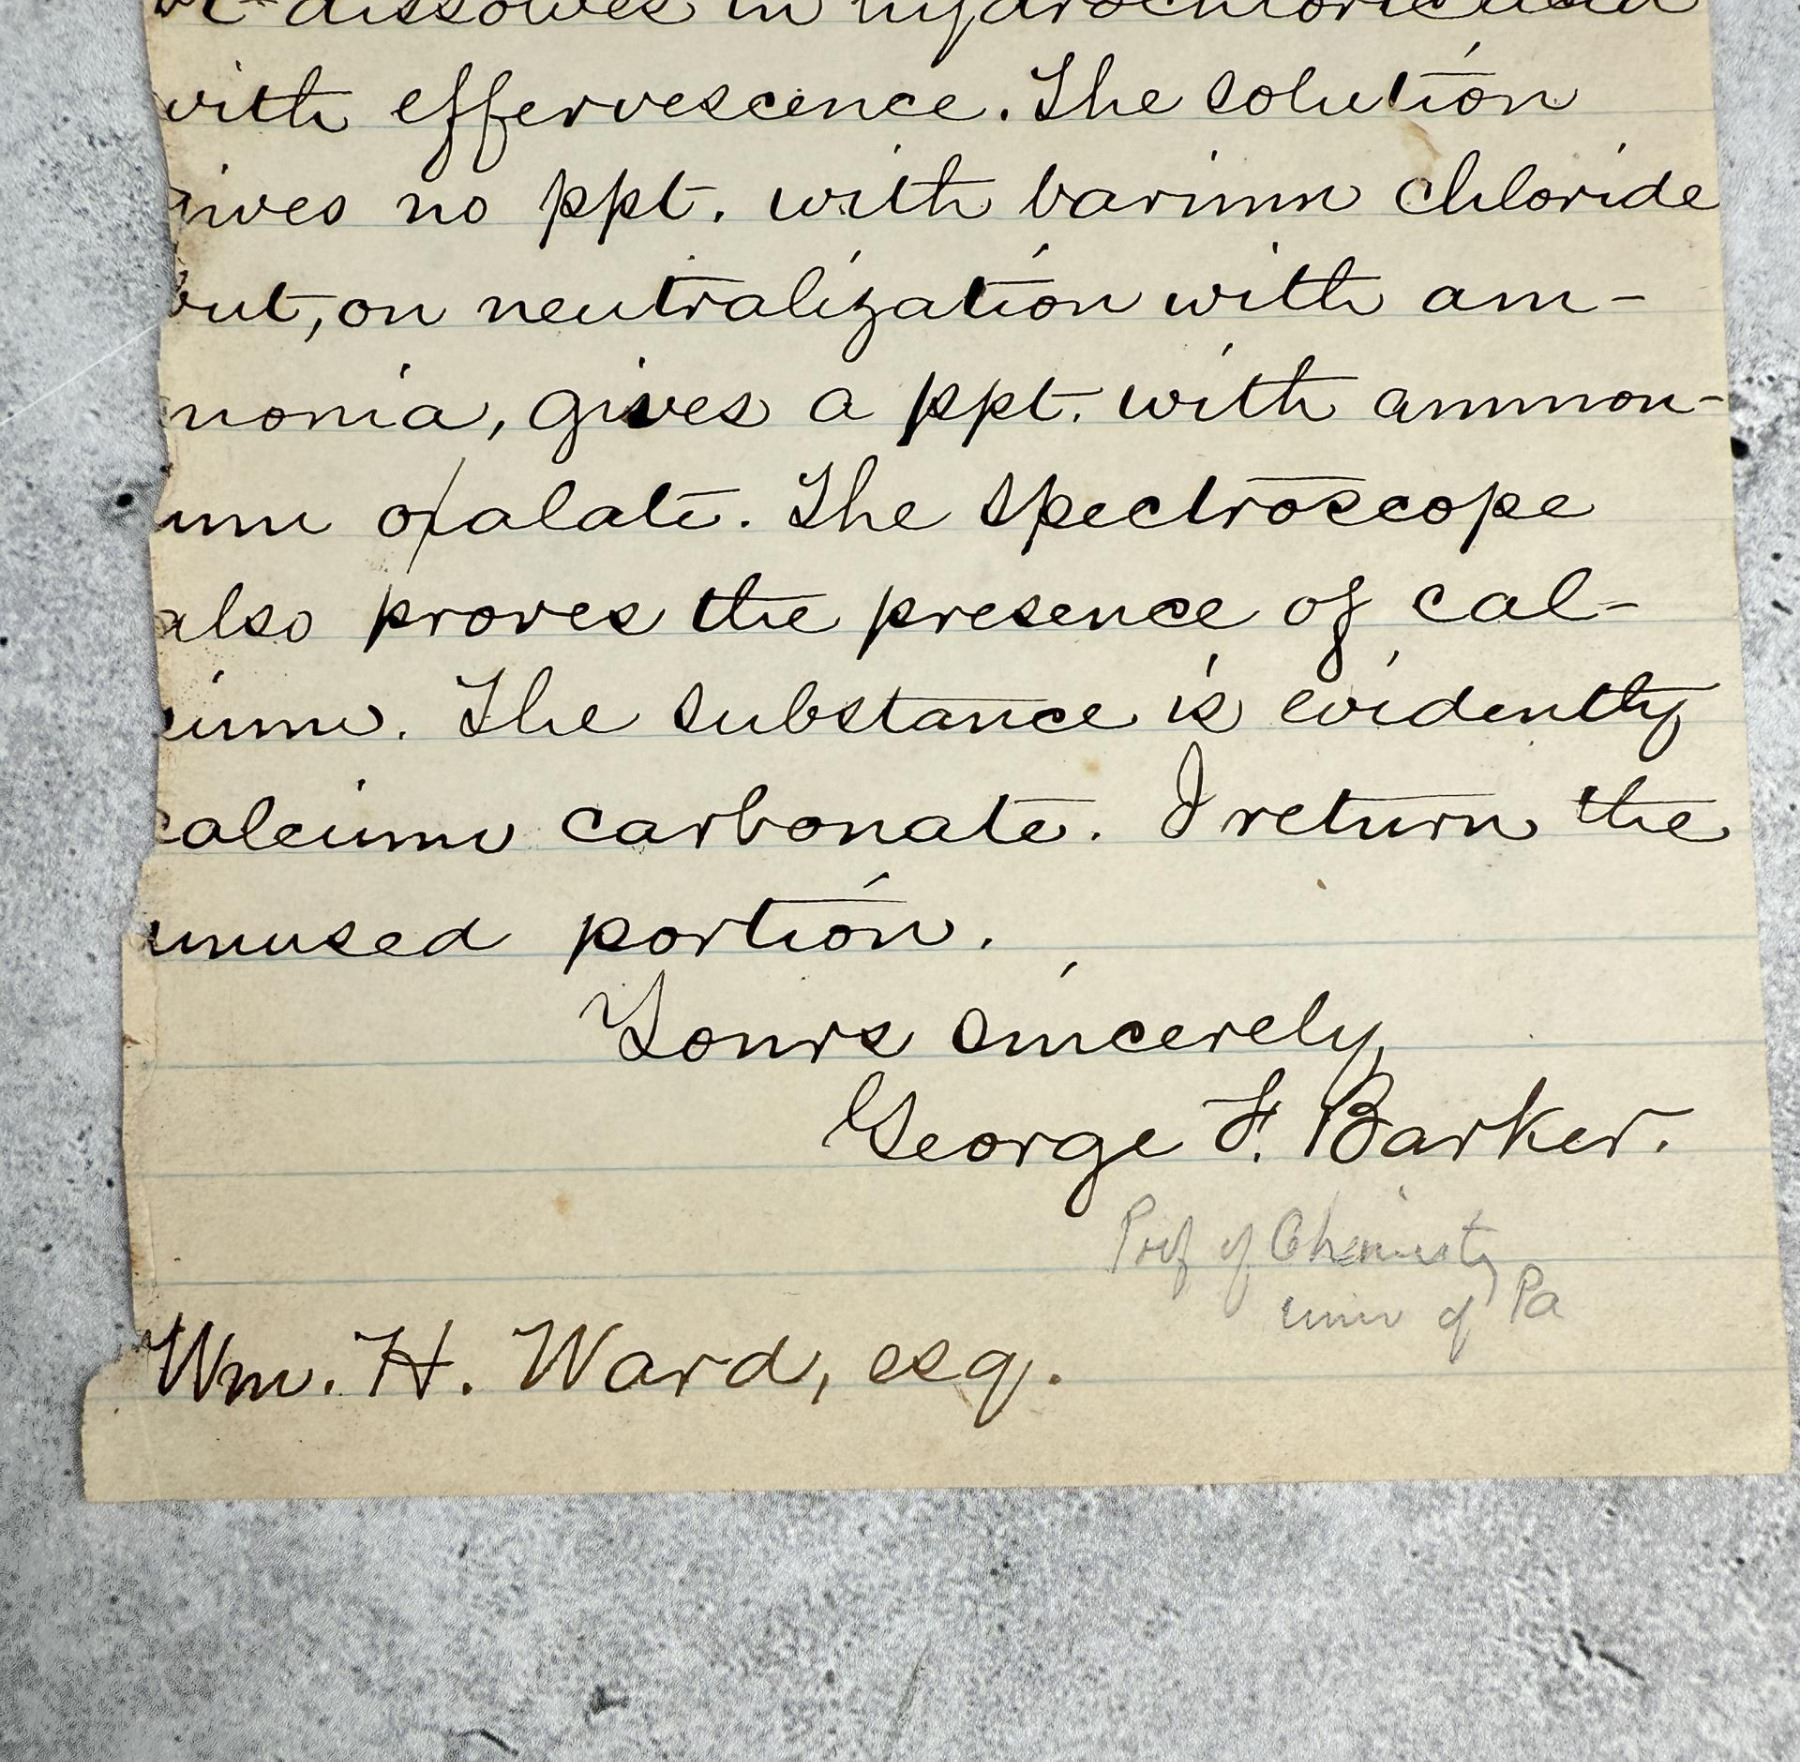 dissolves in hydrochloric acid
with effervescence. The solution
gives no ppt. with barium chloride
but, on neutralization with am-
monia, gives a ppt. with ammon-
ium oxalate. The spectroscope
also proves the presence of cal-
cium. The substance is evidently
calcium carbonate. I return the
unused portion.
Yours sincerely,
George F. Barker.
Prof of Chemistry
Univ of Pa
Wm. H. Ward, esq.